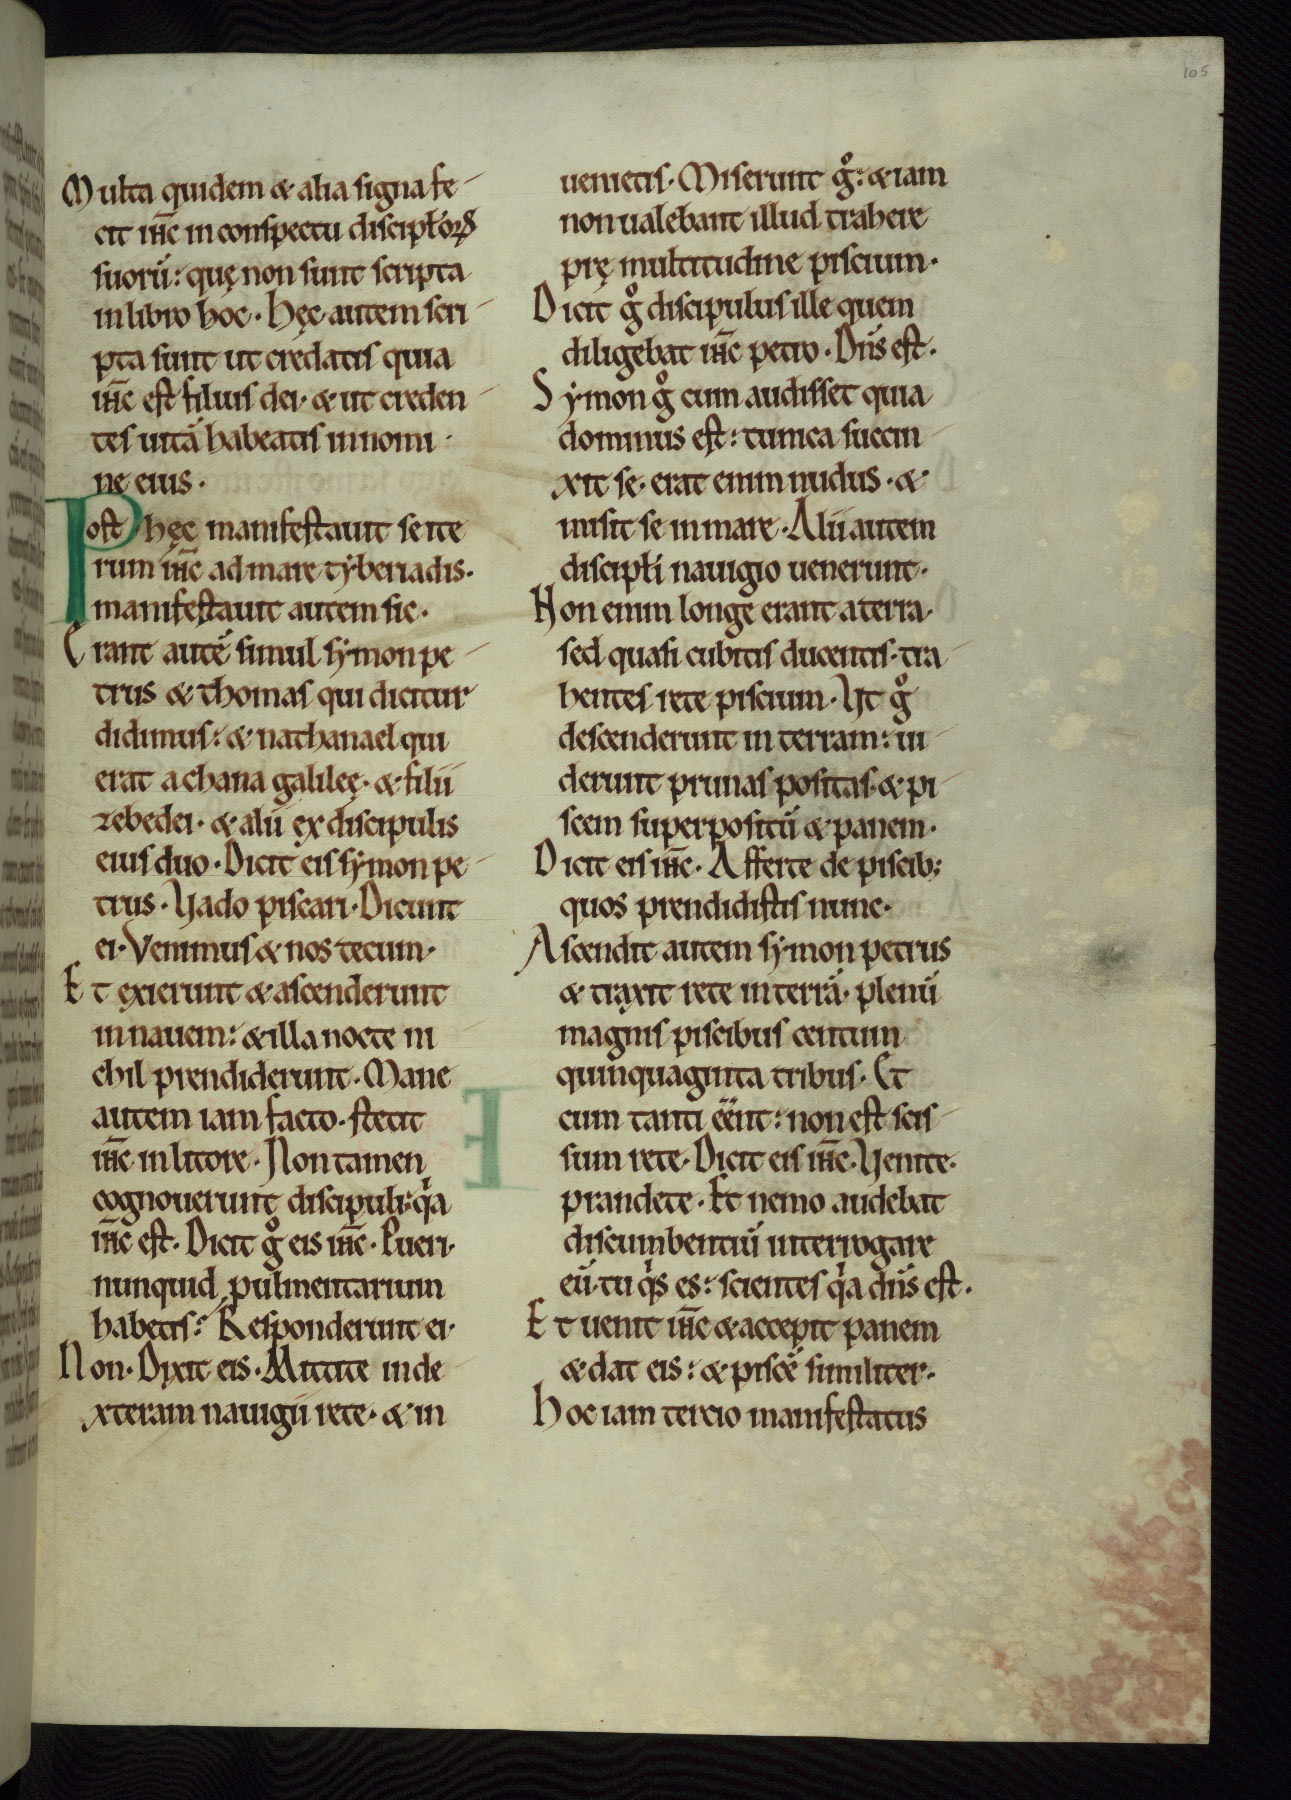 105
Multa quidem & alia signa fe
cit ih̅c in conspectu discipłoꝝ
suorū: quę non sunt scripta
in libro hoc. Hęc autem scri
pta sunt ut credatis quia
ih̅c est filius dei. & ut creden
tes uitā habeatis in nomi
ne eius.
Post hęc manifestauit se ite
rum ih̅c ad mare tẏberiadis.
manifestauit autem sic.
Erant autē simul sẏmon pe
trus & thomas qui dicitur
didimus: & nathanael qui
erat a chana galileę. & filii
zebedei. & alii ex discipulis
eius duo. Dicit eis sẏmon pe
trus. Uado piscari. Dicunt
ei. Venimus & nos tecum.
Et exierunt & ascenderunt
in nauem: & illa nocte ni
chil prendiderunt. Mane
autem iam facto. stetit
ih̅c in litore. Non tamen
cognouerunt discipuli: qͥa
ih̅c est. Dicit gͦ eis ih̅c. Pueri.
nunquid pulmentarium
habetis? Responderunt ei.
Non. Dixit eis. Mittite in de
xteram nauigii rete. & in
uenietis. Miserunt gͦ: & iam
non ualebant illud trahere
prę multitudine piscium.
Dicit gͦ discipulus ille quem
diligebat ih̅c petro. Dn̅s est.
Sẏmon gͦ cum audisset quia
dominus est: tunica succin
xit se. erat enim nudus. &
misit se in mare. Alii autem
discipłi nauigio uenerunt.
Non enim longe erant a terra.
sed quasi cubitis ducentis. tra
hentes rete piscium. Ut gͦ
descenderunt in terram: ui
derunt prunas positas. & pi
scem superpositū & panem.
Dicit eis ih̅c. Afferte de piscib;
quos prendidistis nunc.
Ascendit autem sẏmon petrus
& traxit rete in terrā. plenū
magnis piscibus centum
quinquaginta tribus. Et
cum tanti ee̅nt: non est scis
sum rete. Dicit eis ih̅c. Uenite.
prandete. Et nemo audebat
discumbentiū interrogare
eū. tu qͥs es: scientes qͥa dn̅s est.
Et uenit ih̅c & accepit panem
& dat eis: & piscē similiter.
Hoc iam tercio manifestatus